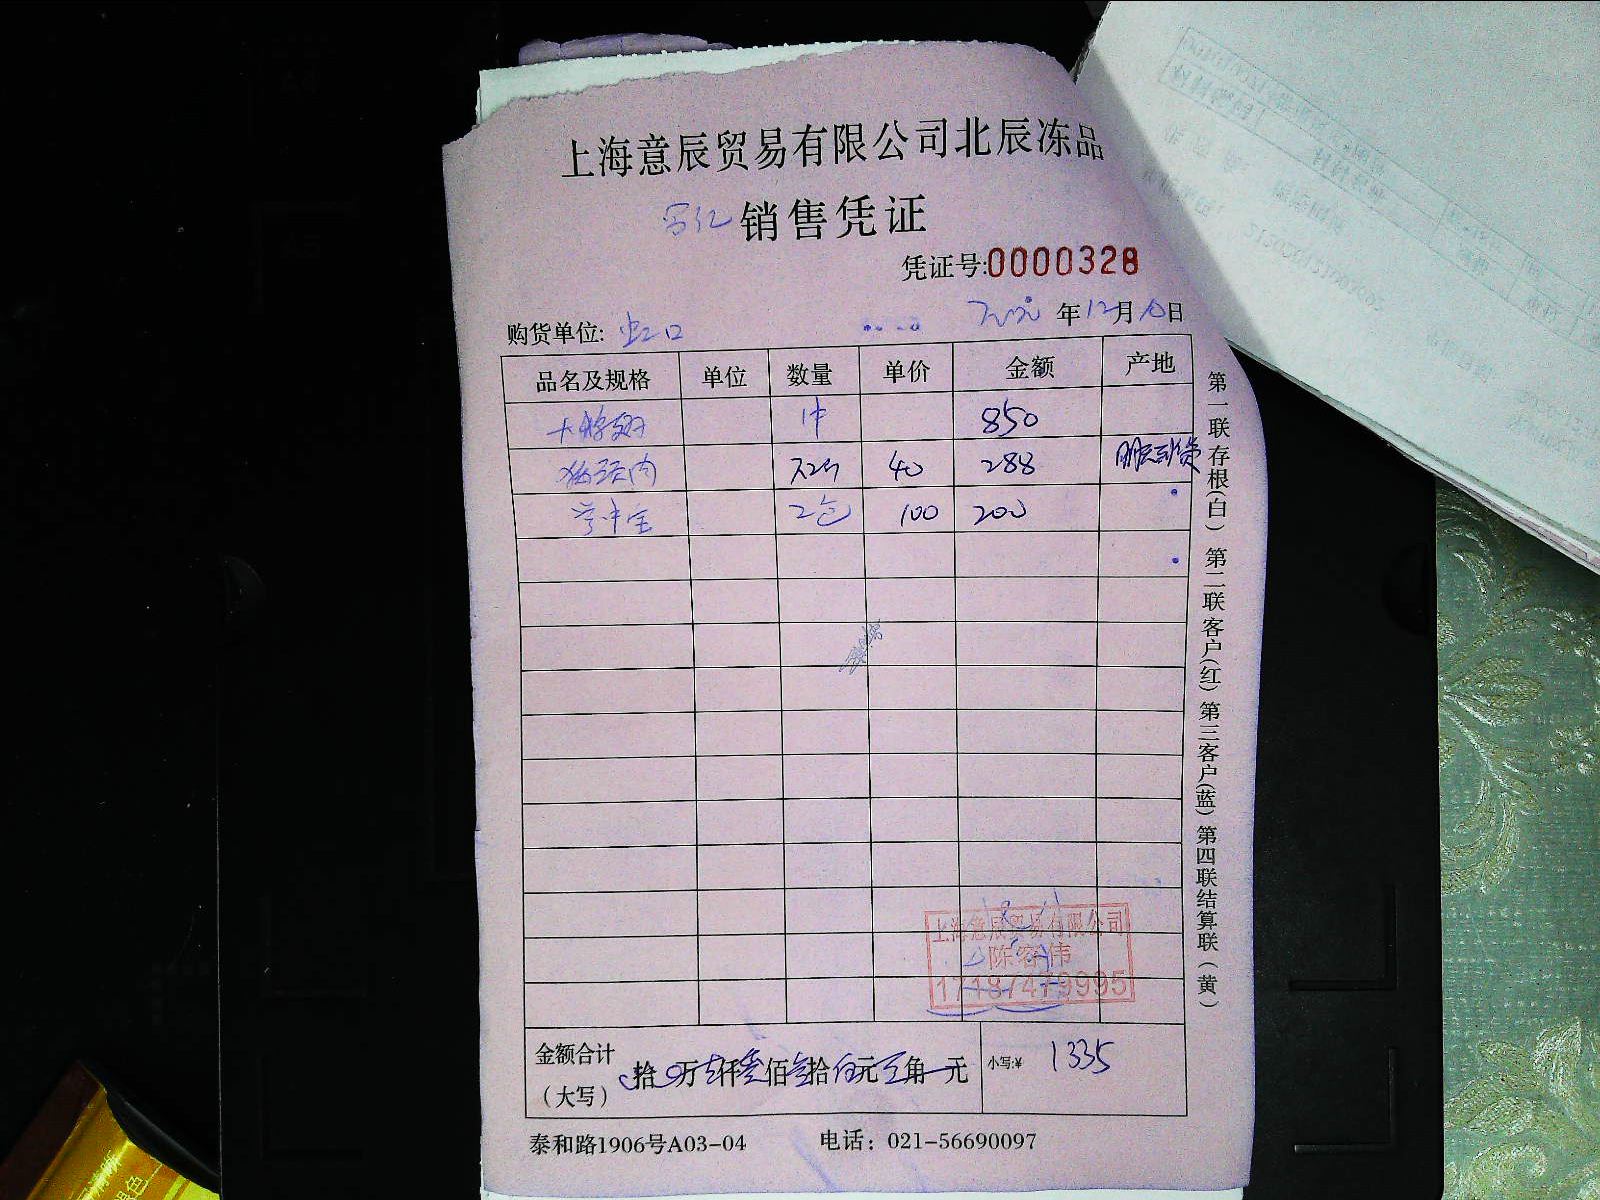 上海意辰贸易有限公司北辰冻品
销售凭证
凭证号:0000328
年12月10日
购货单位: 虹口
品名及规格 单位 数量 单价 金额 产地
1件 850
猪颈肉 40 288
2包 100 200
上海意辰贸易有限公司
陈容伟
17187479995
金额合计
(大写)
拾 万 仟 佰 拾 元 角 元 小写:¥ 1335
泰和路1906号A03-04 电话: 021-56690097
第一联存根(白) 第二联客户(红) 第三客户(蓝) 第四联结算联(黄)